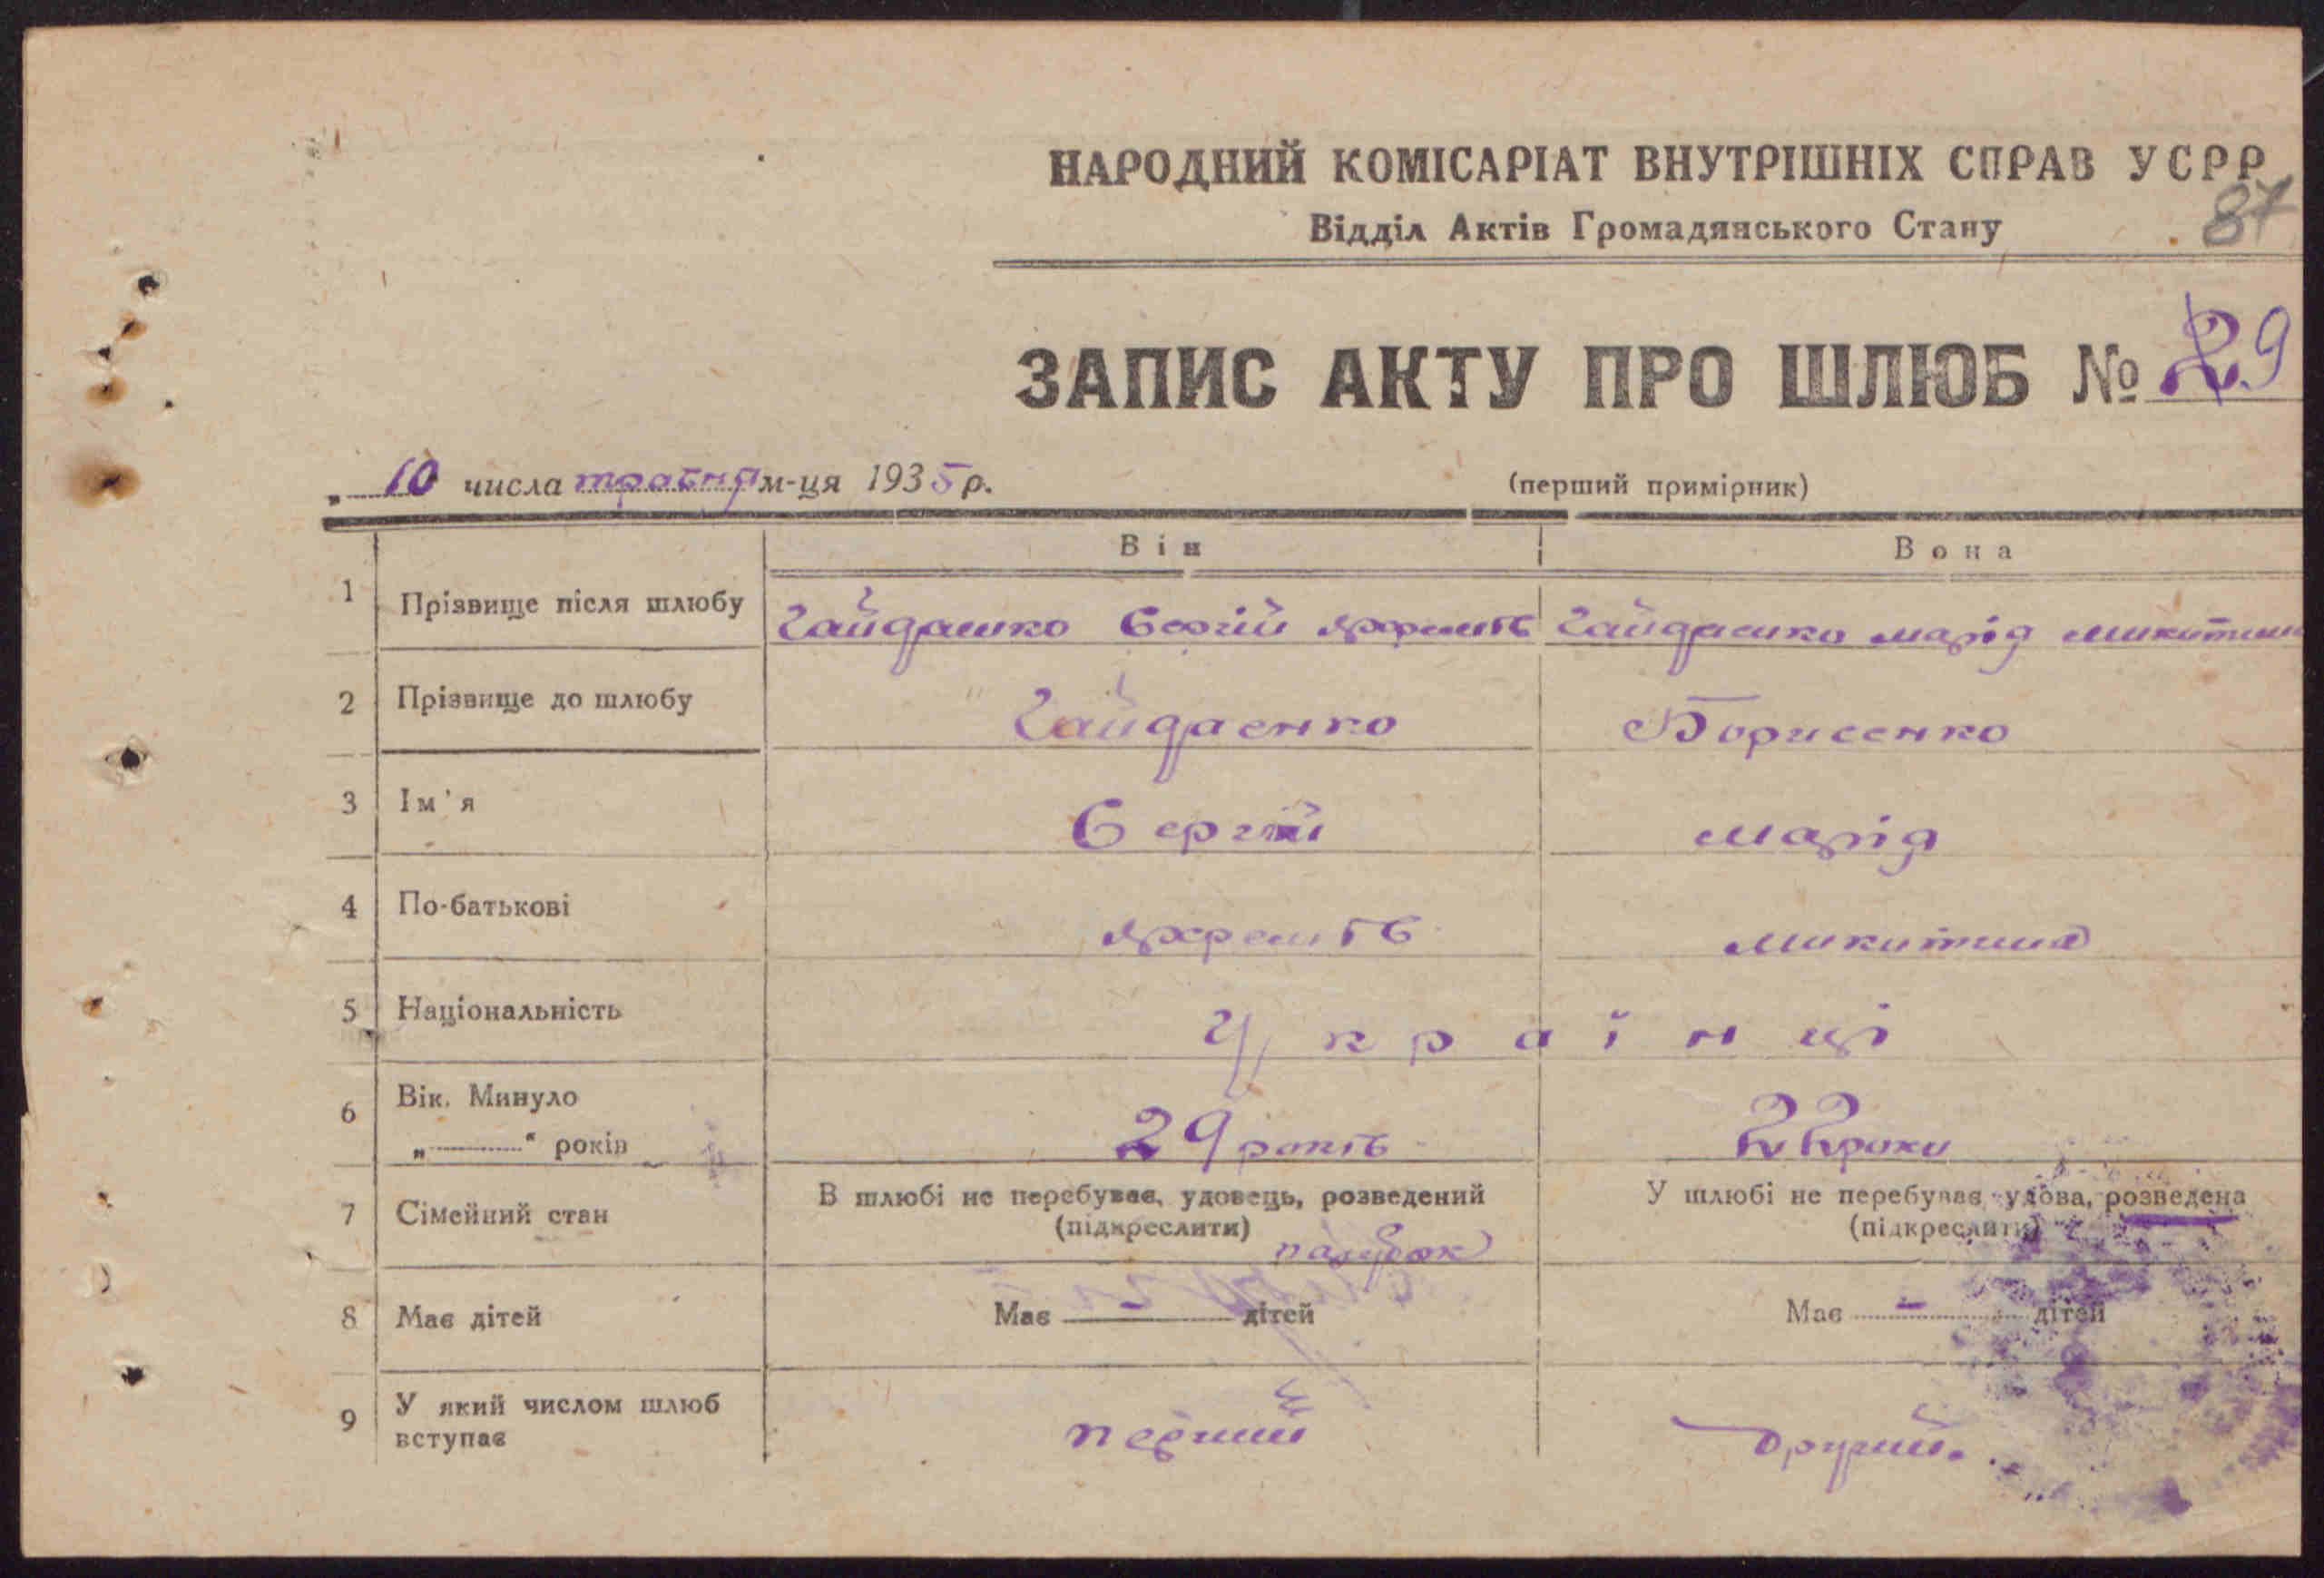 НАРОДНИЙ КОМІСАРІАТ ВНУТРІШНІХ СПРАВ УСРР
Відділ Актів Громадянського Стану 87
ЗАПИС АКТУ ПРО ШЛЮБ № 29
„ 10 числа травня м-ця 1935 р. (перший примірник)
Він Вона
1 Прізвище після шлюбу Гайдаенко Сергій Гайдаенко марія микитина
2 Прізвище до шлюбу Гайдаенко Борисенко
3 Ім'я Сергій марія
4 По-батькові микитина
5 Національність Українці
6 Вік. Минуло 29 років 22 роки
„ “ років
7 Сімейний стан В шлюбі не перебував, удовець, розведений У шлюбі не перебував, удова, розведена
(підкреслити) парубок (підкреслити)
8 Має дітей Має – дітей Має – дітей
9 У який числом шлюб перший другий.
вступає